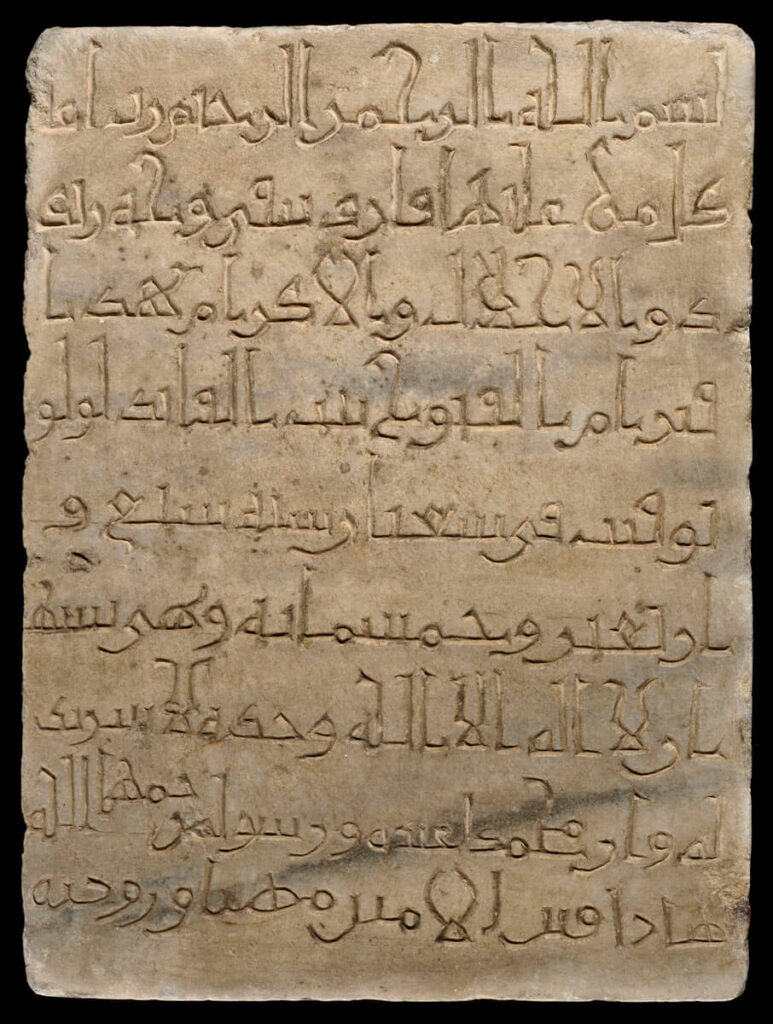 بسم الله الرحمن الرحيم
كل من علاها فان ويبقى وجه رب
ك ذو الاجلال والاكرام هذا
قبر ام الفتوح بنت القائد لولو
توفيت في شعبان سنة سبع و
اربعين وخمسمائة وهي تشهد
ان لا اله الا الله وحده لا شريك
له وان محمدا عبده ورسوله رحمها الله
هاذا قبر الامين